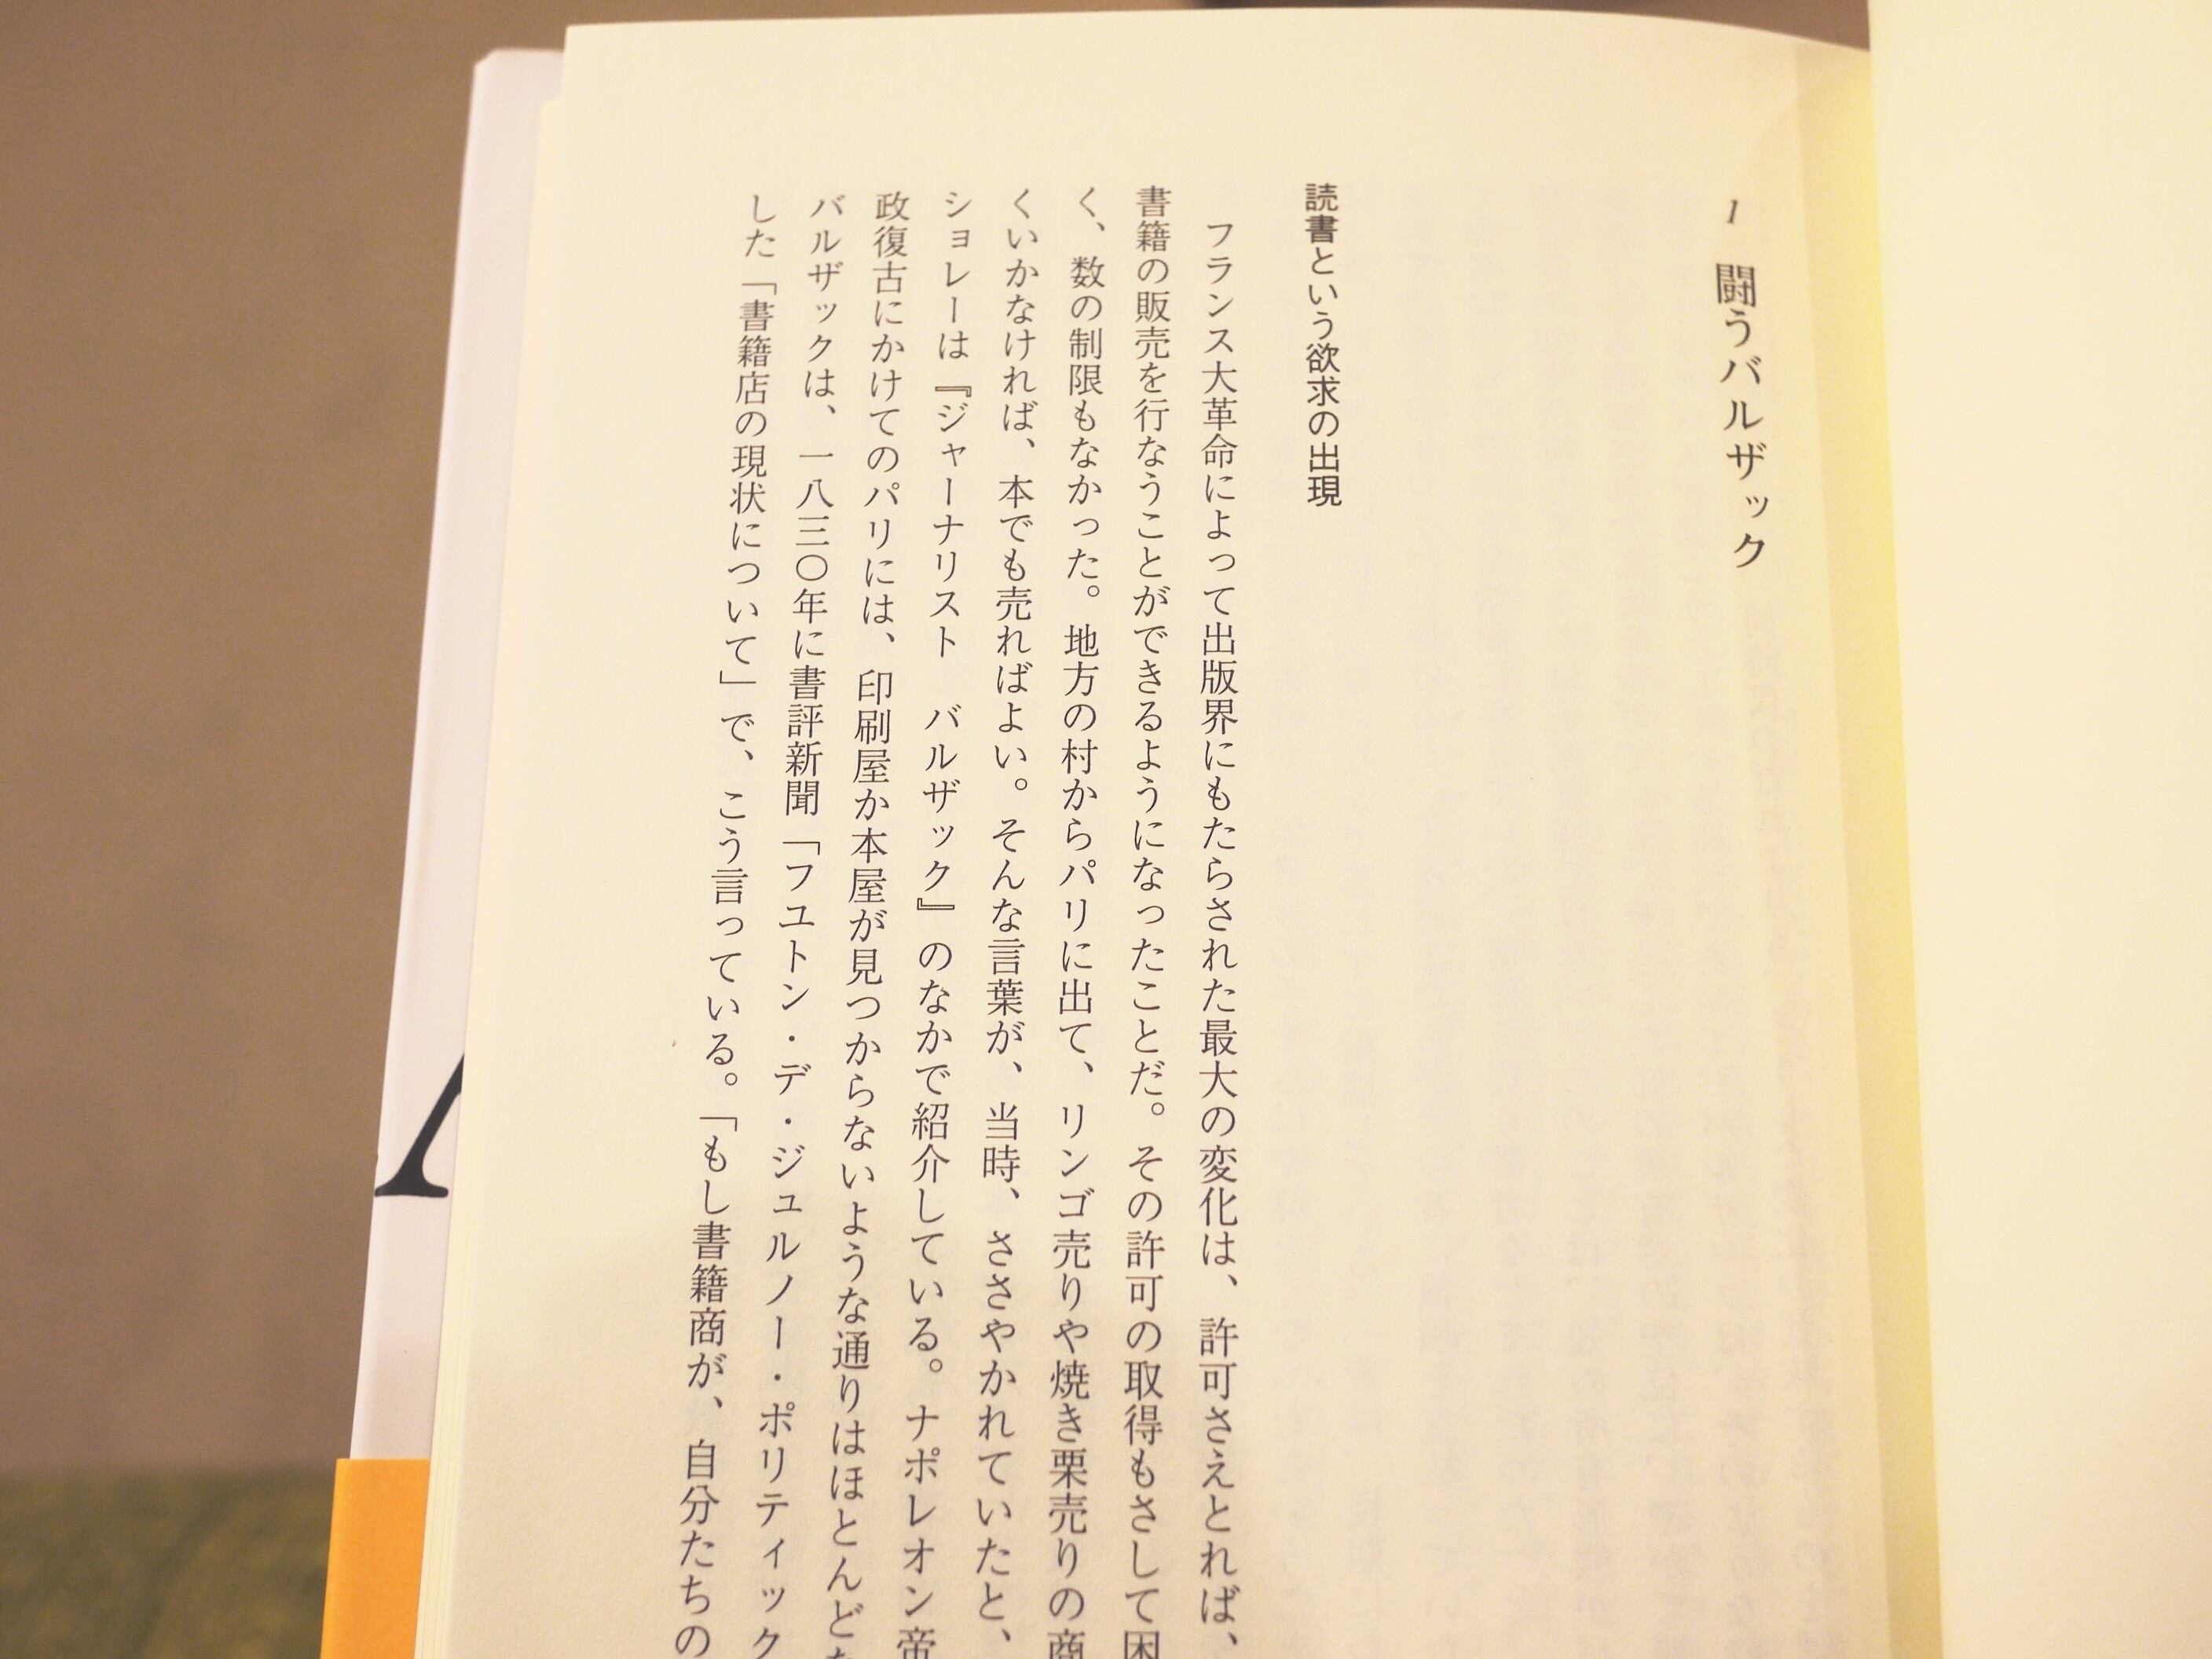 1 闘うバルザック
読書という欲求の出現
フランス大革命によって出版界にもたらされた最大の変化は、許可さえとれば、
書籍の販売を行なうことができるようになったことだ。その許可の取得もさして困
く、数の制限もなかった。地方の村からパリに出て、リンゴ売りや焼き栗売りの商
くいかなければ、本でも売ればよい。そんな言葉が、当時、ささやかれていたと、
ショレーは『ジャーナリスト バルザック』のなかで紹介している。ナポレオン帝
政復古にかけてのパリには、印刷屋か本屋が見つからないような通りはほとんど
バルザックは、一八三〇年に書評新聞「フユトン・デ・ジュルノー・ポリティック
した「書籍店の現状について」で、こう言っている。「もし書籍商が、自分たちの